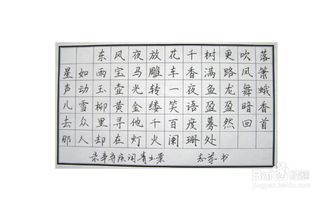 东风夜放花千树更吹落
星如雨宝马雕车香满路凤箫
声动玉壶光转一夜鱼龙舞蛾
儿雪柳黄金缕笑语盈盈暗香
去众里寻他千百度蓦然回首
那人却在灯火阑珊处
录辛弃疾词青玉案 书
jingyan.baidu.com